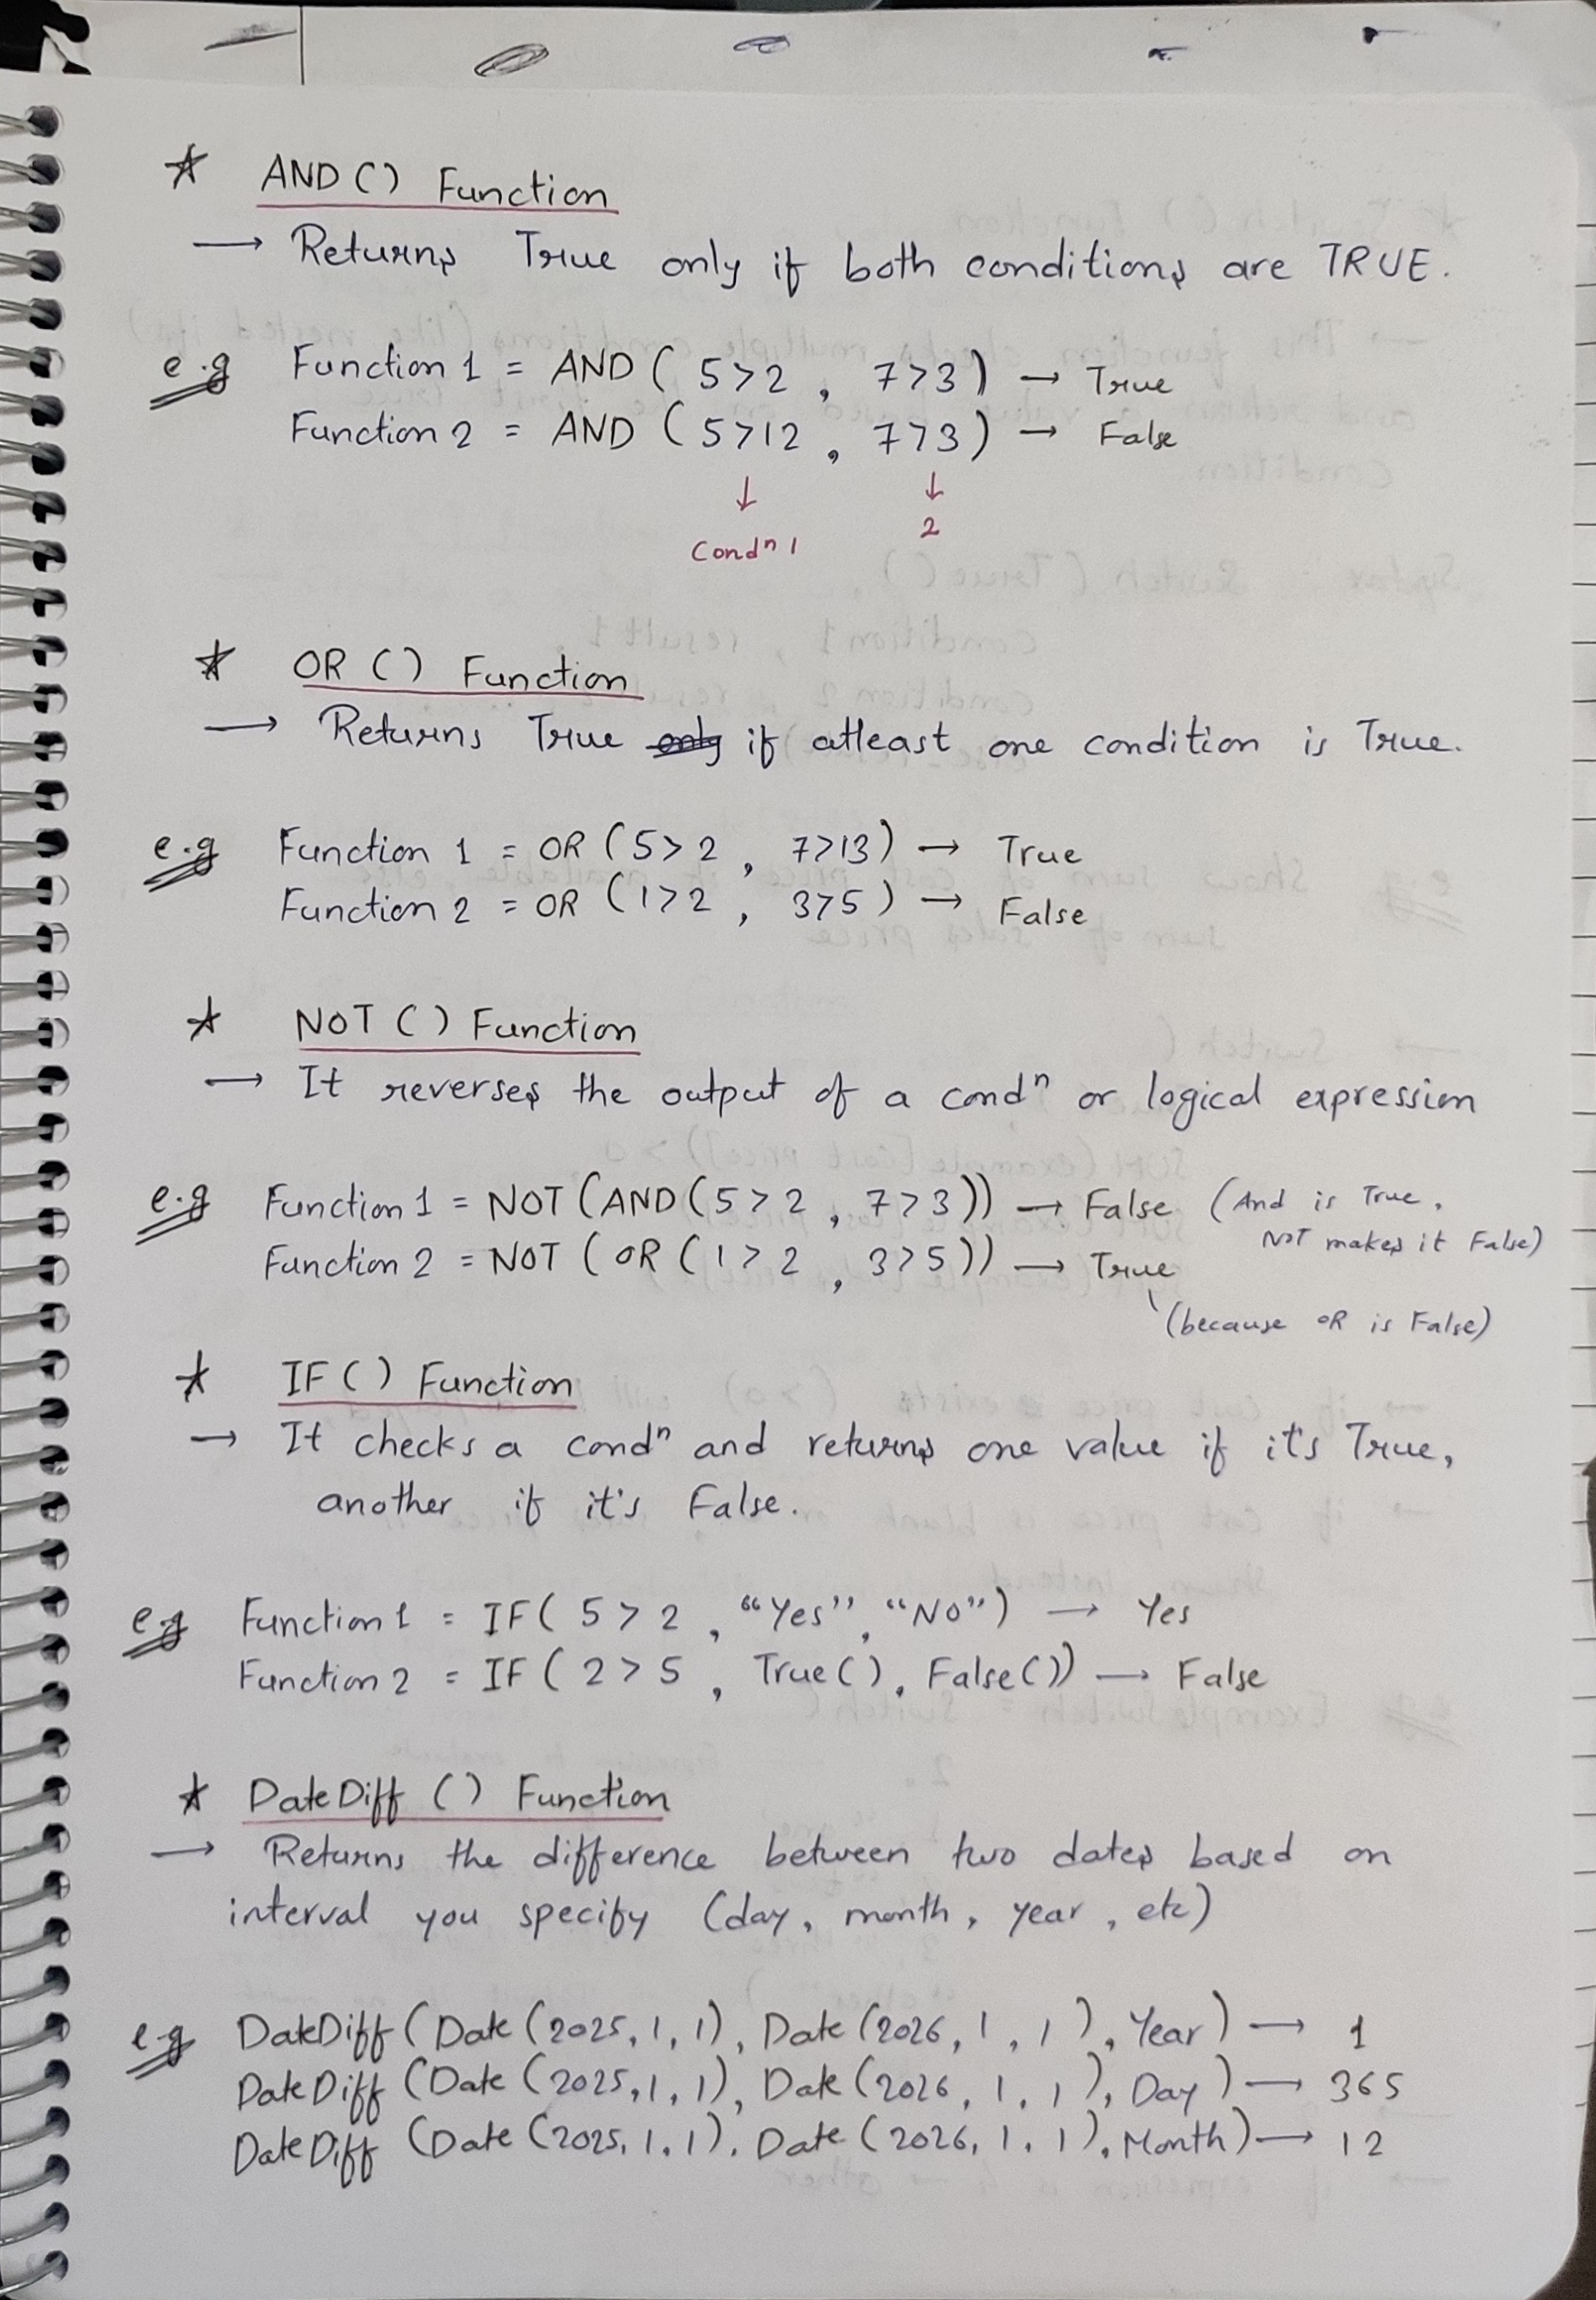 ★ AND () Function
→ Returns True only if both conditions are TRUE.
e.g Function 1 = AND ( 5>2 , 7>3 ) → True
Function 2 = AND ( 5>12 , 7>3 ) → False
↓ ↓
Condⁿ 1 2
★ OR () Function
→ Returns True ~~only~~ if atleast one condition is True.
e.g Function 1 = OR ( 5>2 , 7>13 ) → True
Function 2 = OR ( 1>2 , 3>5 ) → False
★ NOT () Function
→ It reverses the output of a condⁿ or logical expression
e.g Function 1 = NOT (AND ( 5>2 , 7>3 )) → False (And is True,
NOT makes it False)
Function 2 = NOT ( OR ( 1>2 , 3>5 )) → True
(because OR is False)
★ IF () Function
→ It checks a condⁿ and returns one value if it's True,
another if it's False.
e.g Function 1 = IF ( 5>2 , "Yes" , "No" ) → Yes
Function 2 = IF ( 2>5 , True (), False ()) → False
★ DateDiff () Function
→ Returns the difference between two dates based on
interval you specify (day, month, year, etc)
e.g DateDiff ( Date (2025, 1, 1), Date (2026, 1, 1), Year ) → 1
DateDiff ( Date (2025, 1, 1), Date (2026, 1, 1), Day ) → 365
DateDiff ( Date (2025, 1, 1), Date (2026, 1, 1), Month ) → 12